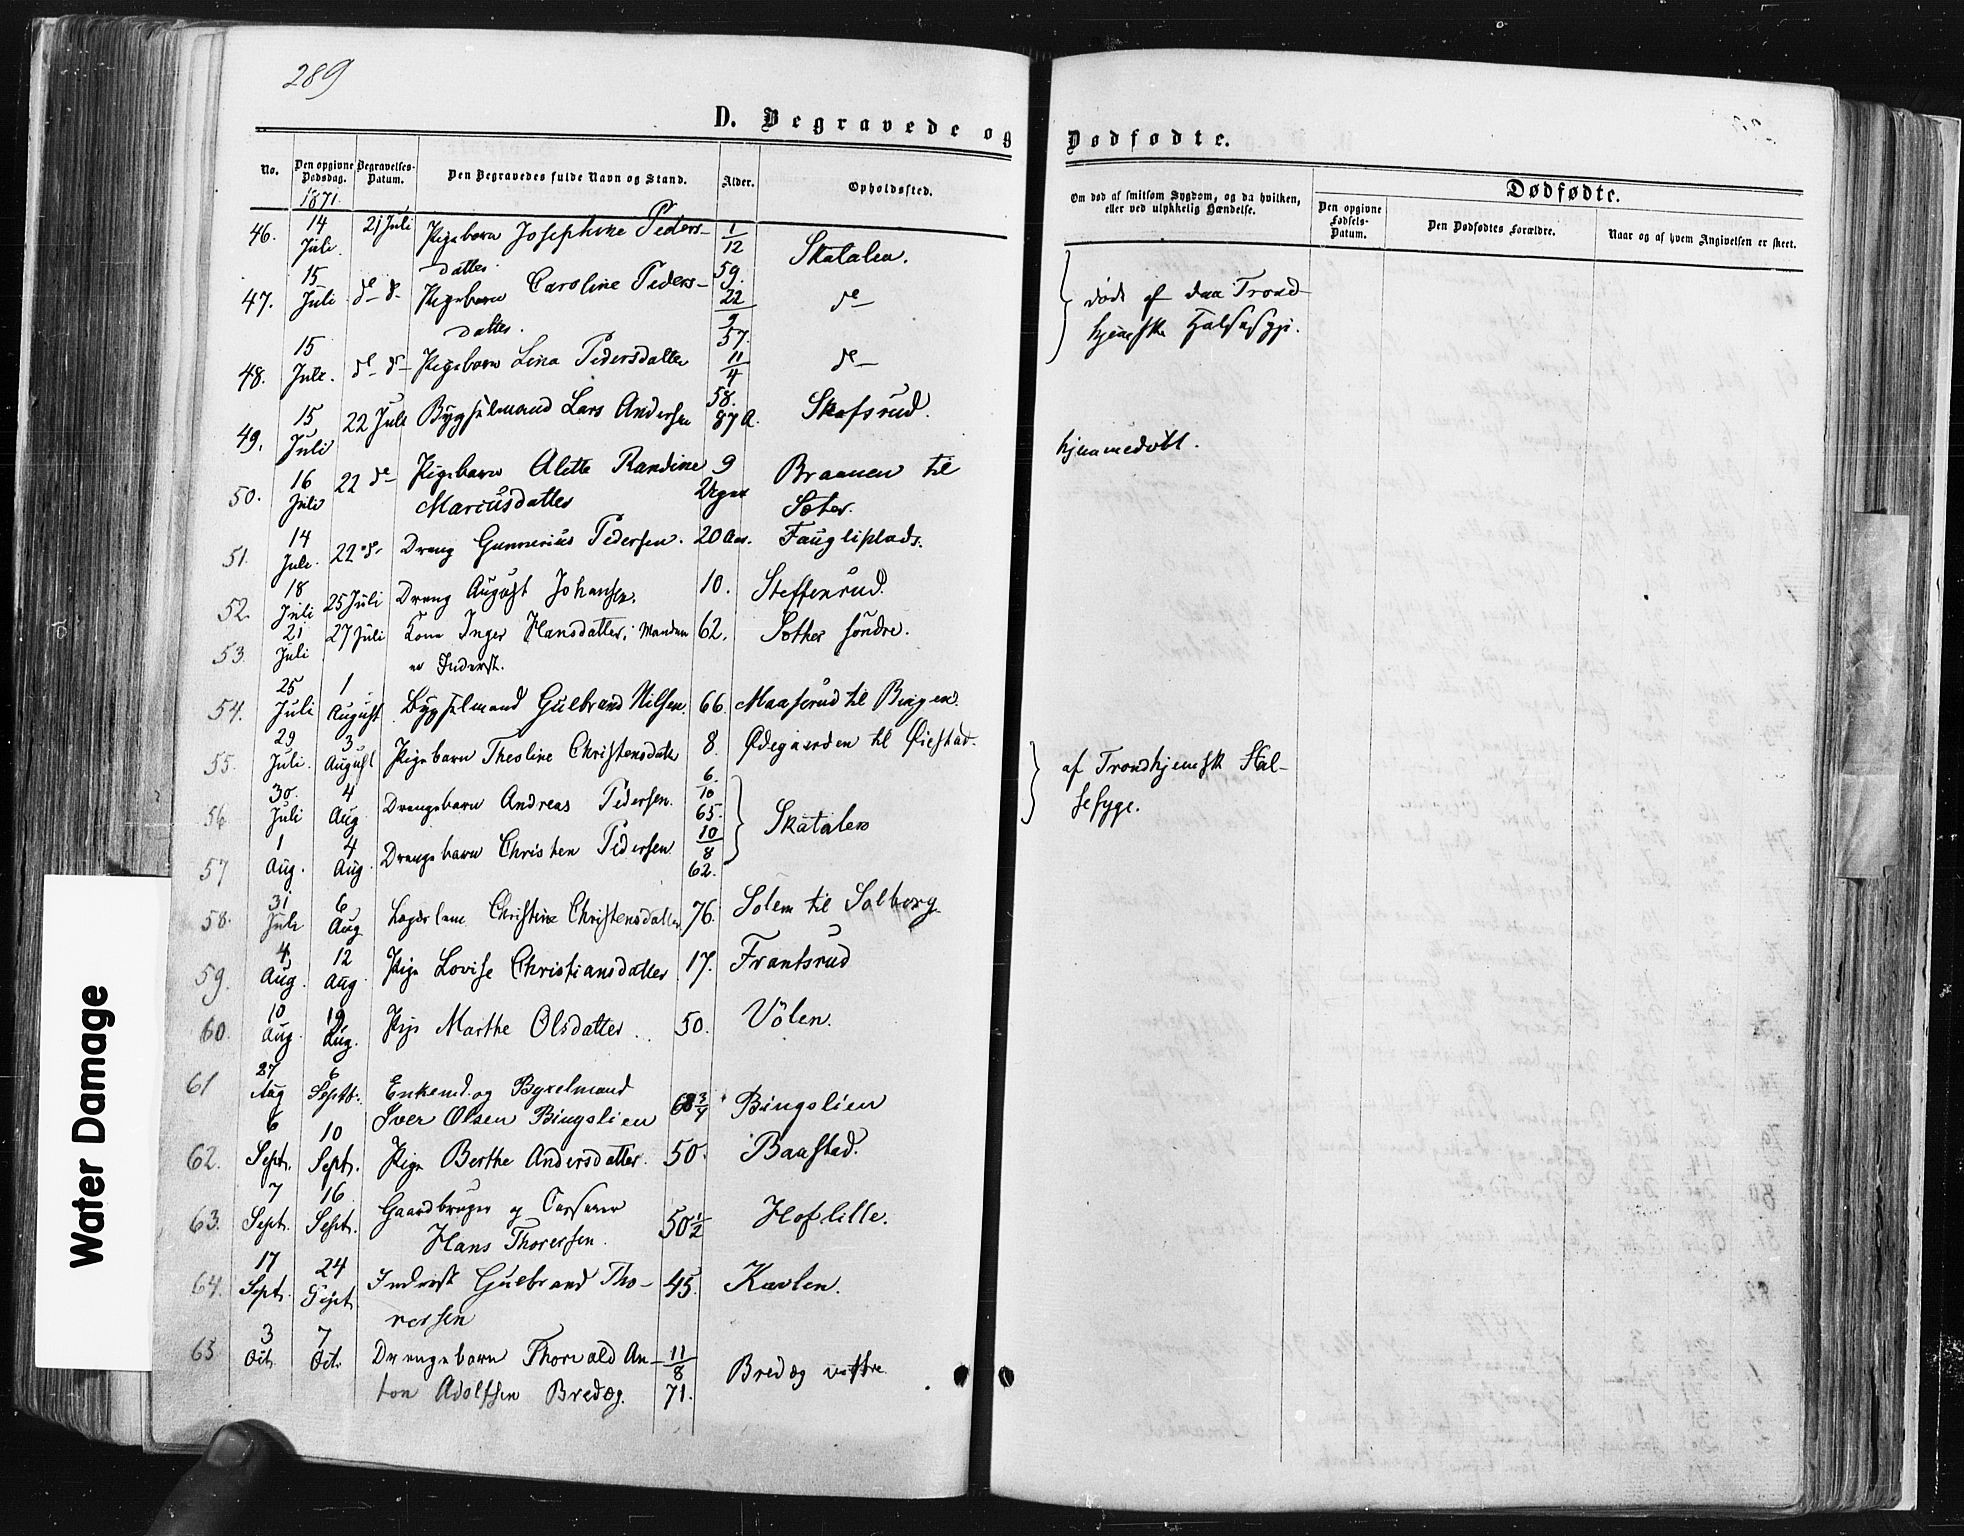 289
D. Begravede og Dødfødte.
No.
Den opgivne Dødsdag.
Begravelses-Datum.
Den Begravedes fulde Navn og Stand.
Alder.
Opholdssted.
Om død af smitsom Sygdom, og da hvilken, eller ved ulykkelig Hændelse.
Dødfødte.
Den opgivne Fødsels-Datum.
Den Dødfødtes Forældre.
Naar og af hvem Angivelsen er skeet.
1871.
46. 14 Juli. 21 Juli Pigebarn Josephine Peders- 1/12
datter. 59. Skatalen.
47. 15 Juli d. d. Pigebarn Caroline Peders- 22/9
datter. 57. d
48. 15 Juli. d. d. Pigebarn Lina Pedersdatter 11/4 58. d
død af den Trond-
hjemske Halsesyge.
49. 15 Juli 22 Juli Bygselmand Lars Andersen 87 A. Skofsrud.
50. 16 Juli 22 d Pigebarn Alette Randine 9 Braanen til
Marcusdatter Uger Sother.
hjemmedøbt.
51. 14 Juli. 22 d. Dreng Gunnerius Pedersen. 20 Aar. Haugliplads.
52. 18 Juli 25 Juli Dreng August Johansen. 10. Steffenrud.
53. 21 Juli 27 Juli Kone Inger Hansdatter, Manden 62. Sother søndre.
er Inderst.
54. 25 Juli 1 August Bygselmand Gulbrand Nilsen. 66. Maaserud til Bingen.
55. 29 Juli. 3 August Pigebarn Theoline Christensdatter 8. Ødegaarden til Øiestad.
56 30. Juli 4 Aug Drengebarn Andreas Pedersen. 6/10 65.
57 1 Aug. 4 Aug. Drengebarn Christen Pedersen 10/8 62. Skatalen
af Trondhjemsk Hal-
sesyge.
58. 31 Juli 6 Aug Lægdslem Christine Christensdatter 76. Solem til Solberg.
59. 4 Aug. 12 Aug. Pige Lovise Christiansdatter. 17. Frantsrud
60. 10 Aug. 19 Aug. Pige Marthe Olsdatter 50. Vølen.
61 27 Aug 6 Septb. Enkemd. og Byxelmand
Iver Olsen Bingslien 68 3/4 Bingslien
62. 6 Sept. 10 Sept. Pige Berthe Andersdatter. 50. Baastad.
63. 7 Sept. 16 Sept. Gaardbruger og
Hans Thoresen. 50 1/2 Hof lille.
64. 17 Sept. 24 Sept. Inderst Gulbrand Tho- 45. Kavlen.
resen
65 3 Oct. 7 Oct. Drengebarn Thorvald An- 11/8
ton Adolfsen Bredøg. 71. Bredøg vestre
Water Damage